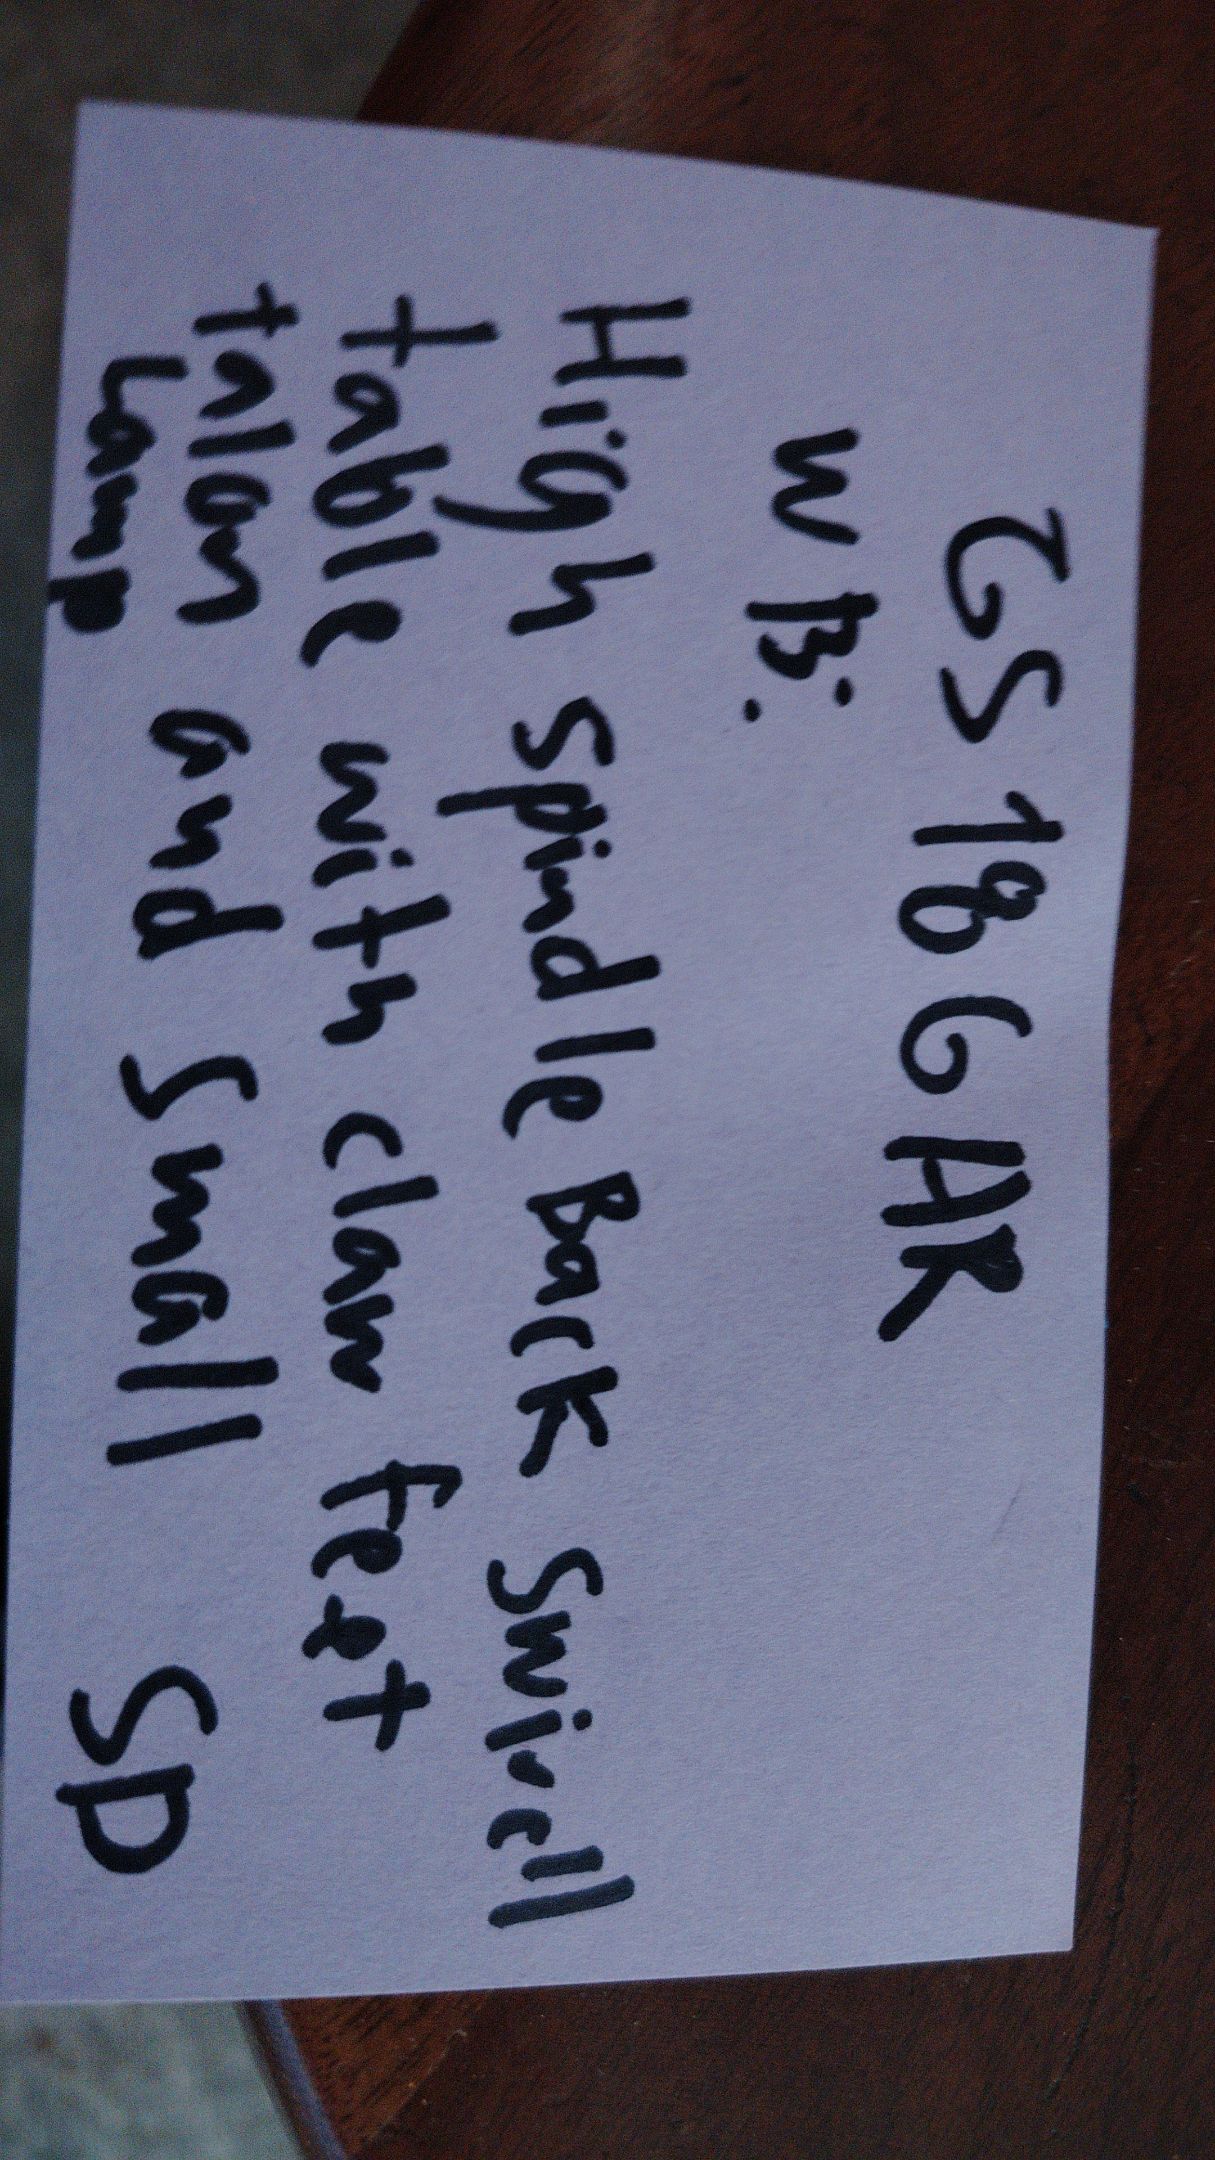 GS18GAR
WB:
High Spindle Back Swirell
table with claw feet
talon and Small SD
Lamp